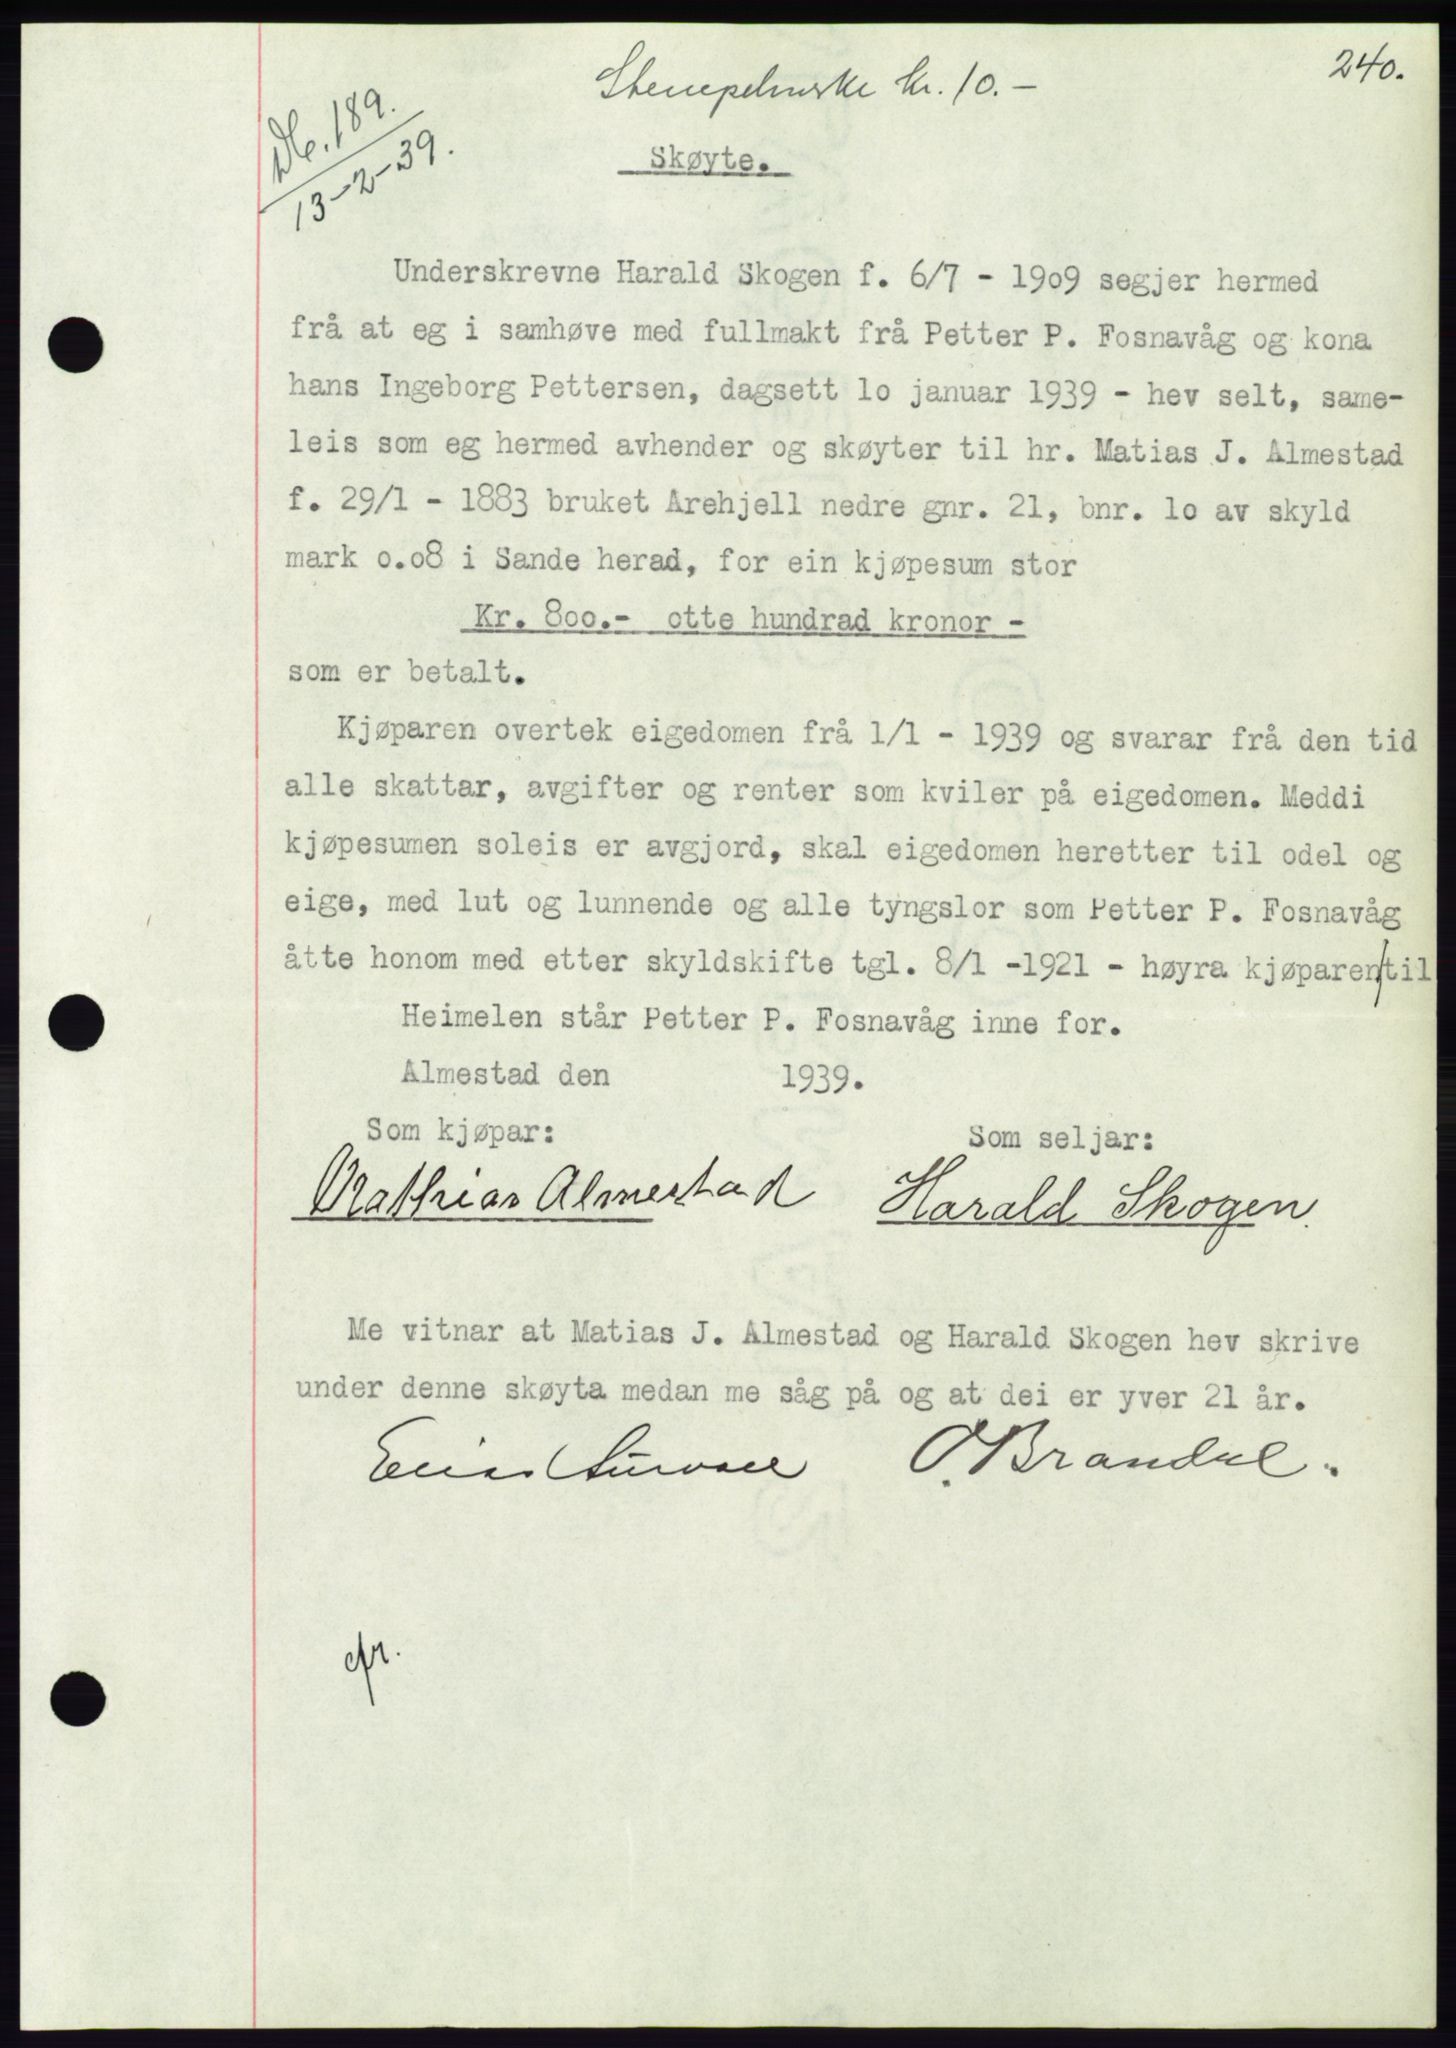 240.
Stempelmerke kr. 10.-
Db. 189.
13-2-39.
Skøyte.
Underskrevne Harald Skogen f. 6/7 - 19o9 segjer hermed
frå at eg i samhøve med fullmakt frå Petter P. Fosnavåg og kona
hans Ingeborg Pettersen, dagsett lo januar 1939 - hev selt, same-
leis som eg hermed avhender og skøyter til hr. Matias J. Almestad
f. 29/1 - 1883 bruket Arehjell nedre gnr. 21, bnr. lo av skyld
mark o.o8 i Sande herad, for ein kjøpesum stor
Kr. 8oo.- otte hundrad kronor -
som er betalt.
Kjøparen overtek eigedomen frå 1/1 - 1939 og svarar frå den tid
alle skattar, avgifter og renter som kviler på eigedomen. Meddi
kjøpesumen soleis er avgjord, skal eigedomen heretter til odel og
eige, med lut og lunnende og alle tyngslor som Petter P. Fosnavåg
åtte honom med etter skyldskifte tgl. 8/1 -1921 - høyra kjøparen/til
Heimelen står Petter P. Fosnavåg inne for.
Almestad den 1939.
Som kjøpar: Som seljar:
Mathias Almestad Harald Skogen.
Me vitnar at Matias J. Almestad og Harald Skogen hev skrive
under denne skøyta medan me såg på og at dei er yver 21 år.
O. Brandal.
cfr.